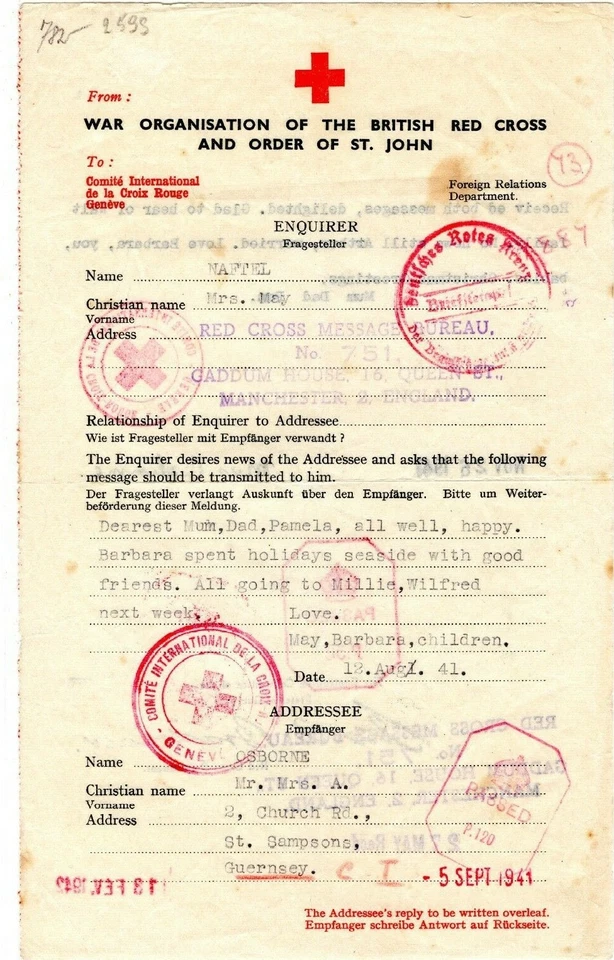 782 2599
From :
WAR ORGANISATION OF THE BRITISH RED CROSS
AND ORDER OF ST. JOHN
To :
Comité International
de la Croix Rouge
Genève
Foreign Relations
Department.
73
ENQUIRER
Fragesteller
Deutsches Rotes Kreuz
Name NAFTEL
Christian name Mrs. May
Vorname
Address RED CROSS MESSAGE BUREAU.
No. 751.
GADDUM HOUSE, 16, QUEEN ST.,
MANCHESTER, 2, ENGLAND.
Relationship of Enquirer to Addressee
Wie ist Fragesteller mit Empfänger verwandt ?
The Enquirer desires news of the Addressee and asks that the following
message should be transmitted to him.
Der Fragesteller verlangt Auskunft über den Empfänger. Bitte um Weiter-
beförderung dieser Meldung.
Dearest Mum,Dad,Pamela, all well, happy.
Barbara spent holidays seaside with good
friends. All going to Millie,Wilfred
next week. Love.
May,Barbara,children.
Date 12.Aug. 41.
COMITÉ INTERNATIONAL DE LA CROIX
GENÈVE
ADDRESSEE
Empfänger
Name OSBORNE
Christian name Mr. Mrs. A.
Vorname
Address 2, Church Rd.,
St. Sampsons,
Guernsey. C I
PASSED
P.120
- 5 SEPT 1941
13 FEV. 1942
The Addressee's reply to be written overleaf.
Empfänger schreibe Antwort auf Rückseite.